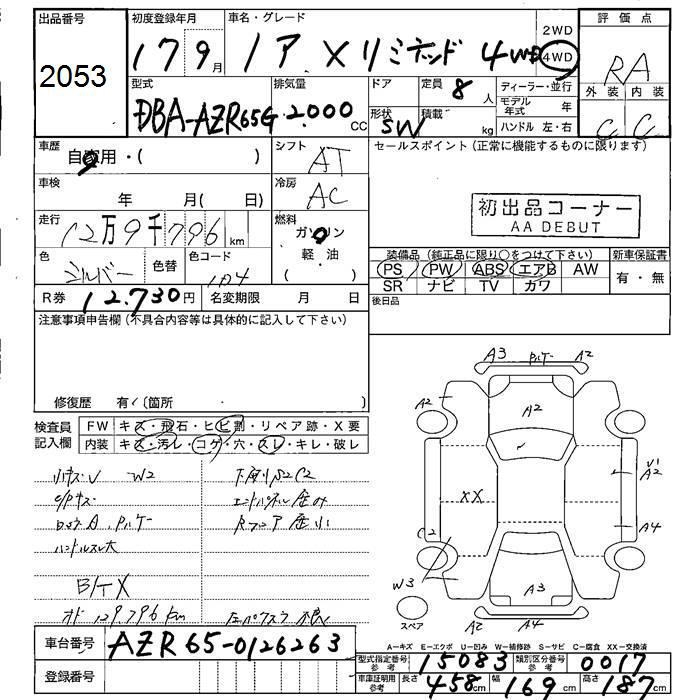 出品番号
2053
初度登録年月
17 9月
車名・グレード
ノア X リミテッド 4WD
2WD
4WD
評価点
RA
外装 内装
C C
型式
DBA-AZR65G
排気量
2.000 CC
ドア
形状
SW
定員
8 人
積載 kg
ディーラー・並行
モデル年式 年
ハンドル 左・右
車歴
自家用・( )
シフト
AT
セールスポイント(正常に機能するものに限ります)
車検
年 月( 日)
冷房
AC
初出品コーナー
AA DEBUT
走行
12万9千796 km
燃料
ガソリン
軽・油
色
シルバー
色替
色コード
1D4
装備品(純正品に限り○をつけて下さい)
PS PW ABS エアB AW
SR ナビ TV カワ
新車保証書
有・無
R券 12.730円
名変期限 月 日
後日品
注意事項申告欄(不具合内容等は具体的に記入して下さい)
修復歴 有/〔箇所 〕
検査員記入欄
FW キズ・飛石・ヒビ割・リペア跡・X要
内装 キズ・汚レ・コゲ・穴・スレ・キレ・破レ
小キズU W2
下廻りS2C2
エンドパネル歪み
Rフロア歪小
ハンドルスレ大
B/T X
オド 129796 km
A3 A2
A2
A2
XX
U1
A2
A4
C2
W3
A3
A2 A4
スペア
車台番号
AZR65-0126263
登録番号
A-キズ E-エクボ U-凹み W-補修跡 S-サビ C-腐食 XX-交換済
型式指定番号 参考
15083
類別区分番号 参考
0017
車庫証明用 参考
長さ 458cm
幅 169cm
高さ 187cm